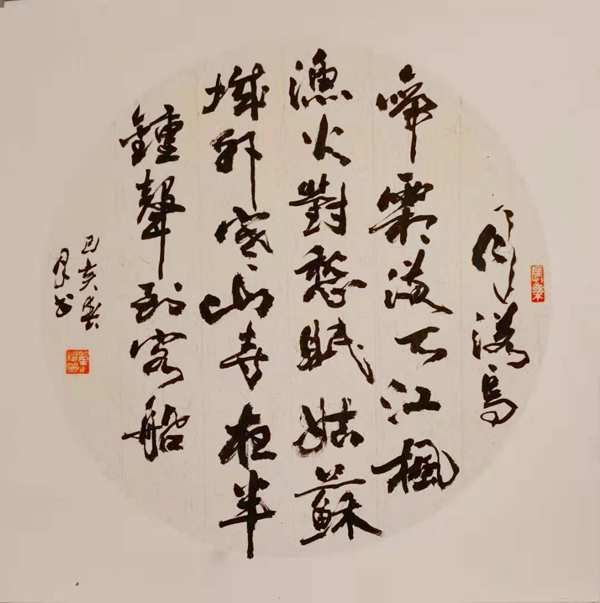 月落烏
啼霜滿天江楓
漁火對愁眠姑蘇
城外寒山寺夜半
鍾聲到客船
己亥春